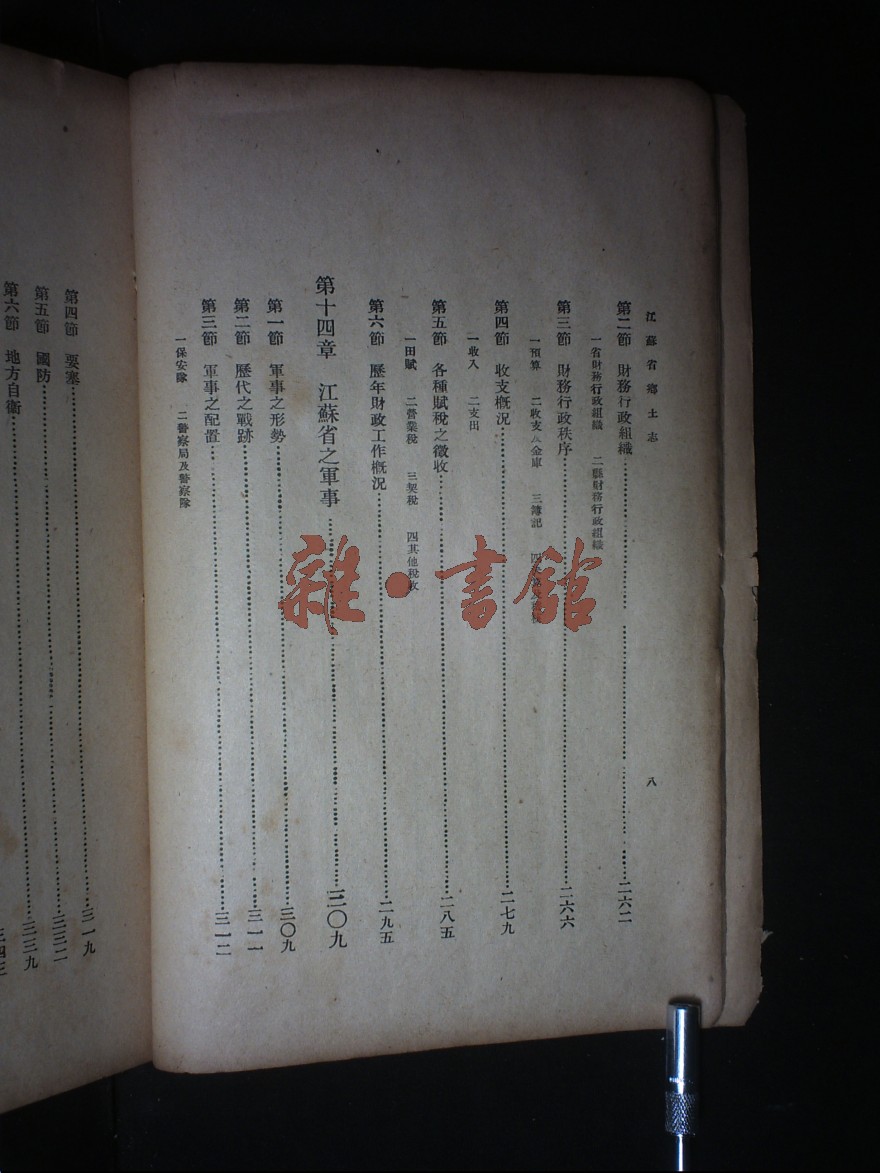 江蘇省鄉土志
八
第二節 財務行政組織 二六二
一省財務行政組織 二縣財務行政組織
第三節 財務行政秩序 二六六
一預算 二收支及金庫 三簿記
第四節 收支概況 二七九
一收入 二支出
第五節 各種賦稅之徵收 二八五
一田賦 二營業稅 三契稅 四其他稅收
第六節 歷年財政工作概況 二九五
第十四章 江蘇省之軍事 三〇九
第一節 軍事之形勢 三〇九
第二節 歷代之戰跡 三一一
第三節 軍事之配置 三一二
一保安隊 二警察局及警察隊
第四節 要塞 三一九
第五節 國防 三三二
第六節 地方自衛 三三九
雜·書館